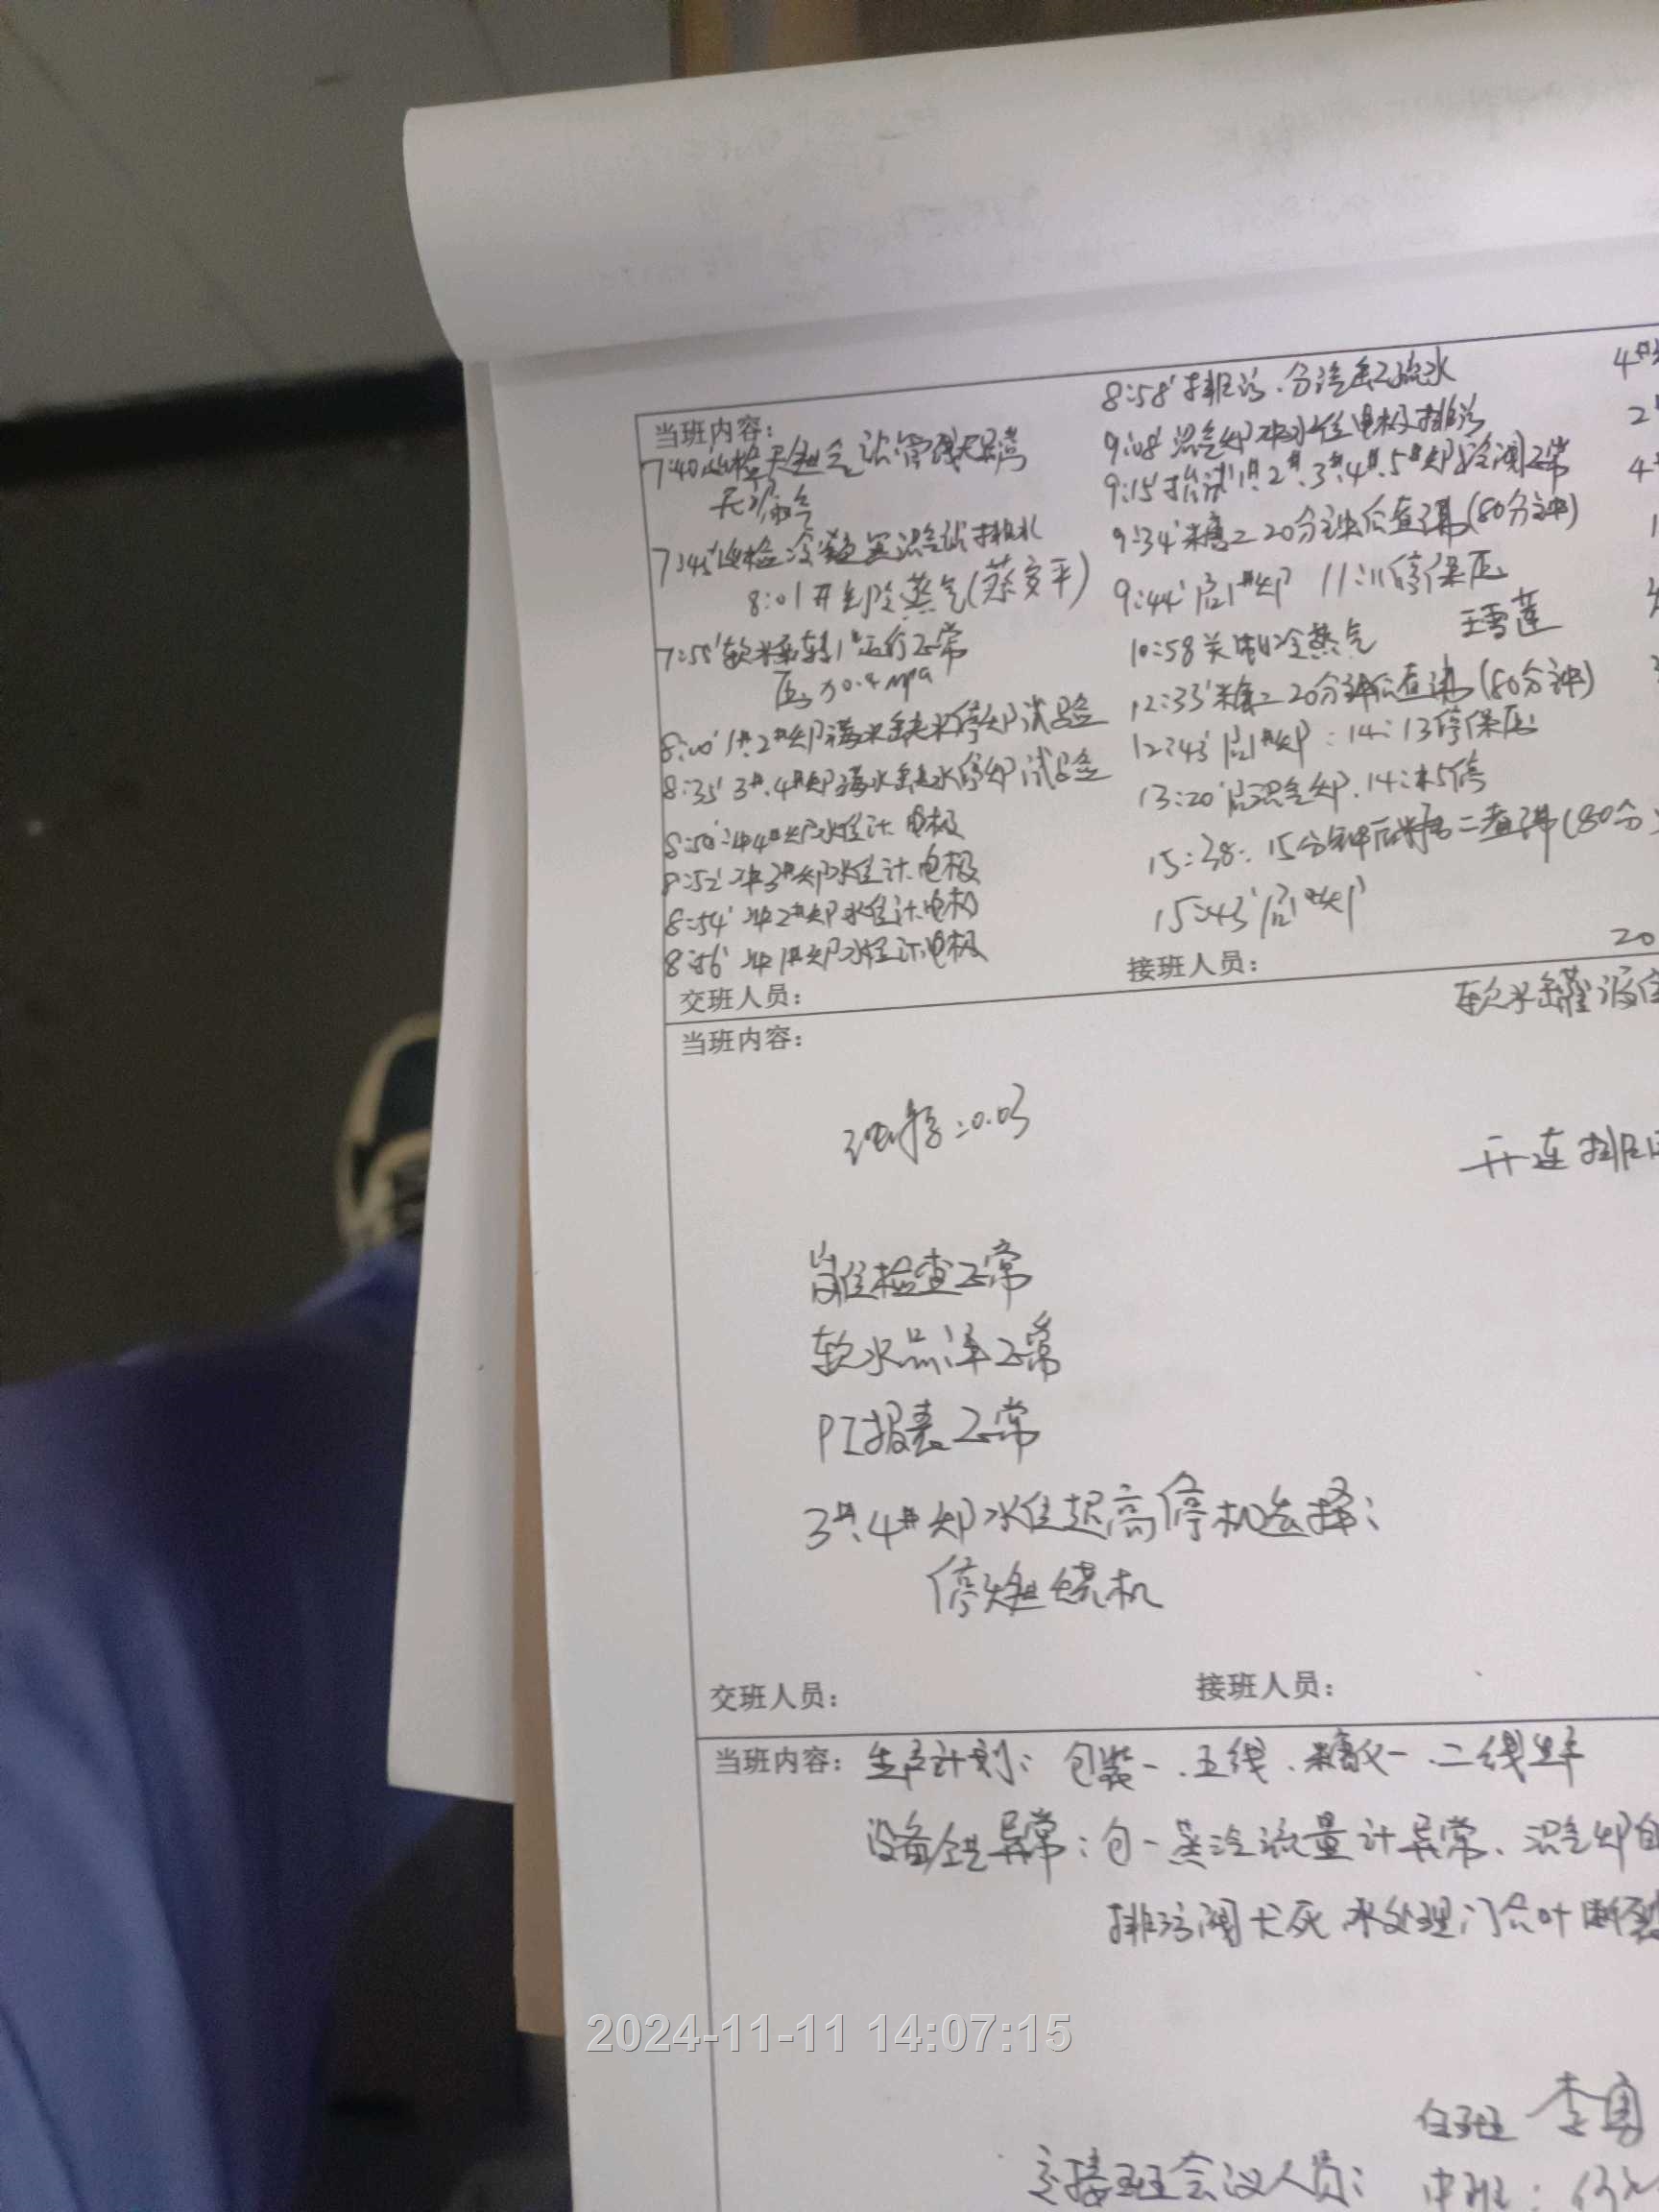 当班内容：
7:40巡检天然气站管线无异常
无泄漏
7:45巡检冷凝罐混合站排水
8:01开制冷蒸气(蔡安平)
7:55'软水泵转1#运行正常
压力0.4mpa
8:00' 1#.2#炉满水缺水停炉试验
8:35' 3#.4#炉满水缺水停炉试验
8:50'冲4#炉水位计.电极
8:52'冲3#炉水位计.电极
8:54'冲2#炉水位计.电极
8:56'冲1#炉水位计.电极
8:58'排污.分汽缸疏水
9:08'混合炉冲水位电极排污
9:15'抬试1#.2#.3#.4#.5#炉安全阀正常
9:34'糖二20分钟后查沸(80分钟)
9:44'启1#炉 11:11停保压
10:58关制冷蒸气 王雪莲
12:33'糖二20分钟后查沸(80分钟)
12:43'启1#炉：14:13停保压
13:20'启混合炉.14:45停
15:38：15分钟后糖二查沸(80分
15:43'启1#炉
交班人员：
接班人员：
4#
2#
4#
20
当班内容：
软水罐液位
=0.03
开连排
岗位检查正常
软水品译正常
PI报表正常
3#.4#炉水位超高停机选择：
停燃烧机
交班人员：
接班人员：
当班内容：生产计划：包装一.五线.糖化一.二线生产
设备异常：包一蒸汽流量计异常、混合炉自
排污阀卡死 水处理门合叶断裂
白班 李勇
交接班会议人员：中班：
2024-11-11 14:07:15